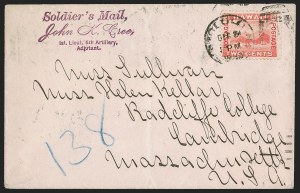 Soldier's Mail,
John K. Cree,
1st. Lieut. 6th Artillery,
Adjutant.
Miss Sullivan
Miss Helen Kellar,
Radcliffe College
Cambridge
Massachusetts
U.S.A.
138
CENTS